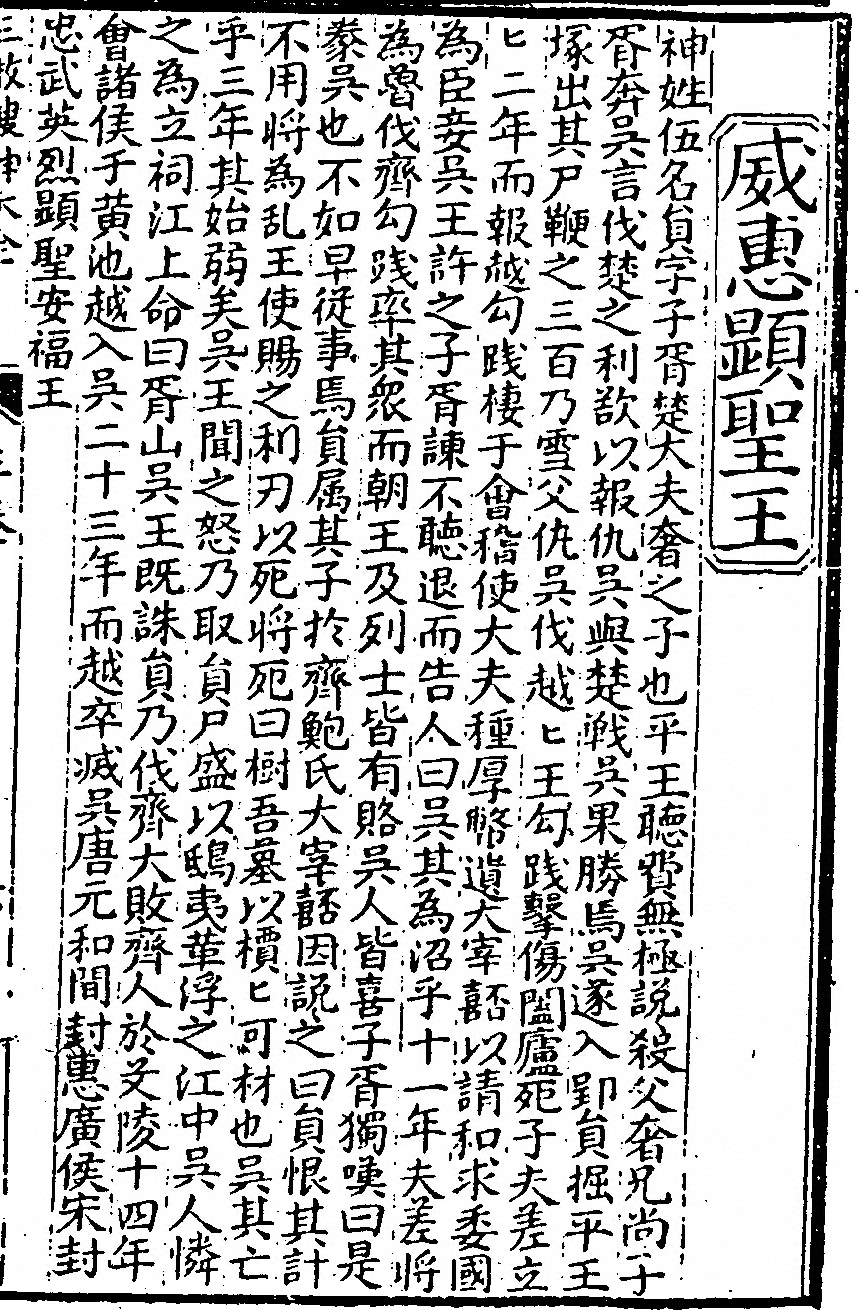 威惠顯聖王
神姓伍名員字子胥楚大夫奢之子也平王聽費無極說殺父奢兄尚子
胥奔吳言伐楚之利欲以報仇吳與楚戰吳果勝焉吳遂入郢員掘平王
塚出其尸鞭之三百乃雪父仇吳伐越匕王勾踐擊傷闔廬死子夫差立
匕二年而報越勾踐棲于會稽使大夫種厚幣遺大宰嚭以請和求委國
為臣妾吳王許之子胥諫不聽退而告人曰吳其為沼乎十一年夫差將
為魯伐齊勾踐率其眾而朝王及列士皆有賂吳人皆喜子胥獨嘆曰是
豢吳也不如早從事焉員属其子於齊鮑氏大宰嚭因說之曰員恨其計
不用將為乱王使賜之利刃以死將死曰樹吾墓以檟匕可材也吳其亡
乎三年其始弱矣吳王聞之怒乃取員尸盛以鴟夷革浮之江中吳人憐
之為立祠江上命曰胥山吳王既誅員乃伐齊大敗齊人於艾陵十四年
會諸侯于黃池越入吳二十三年而越卒滅吳唐元和間封惠廣侯宋封
忠武英烈顯聖安福王